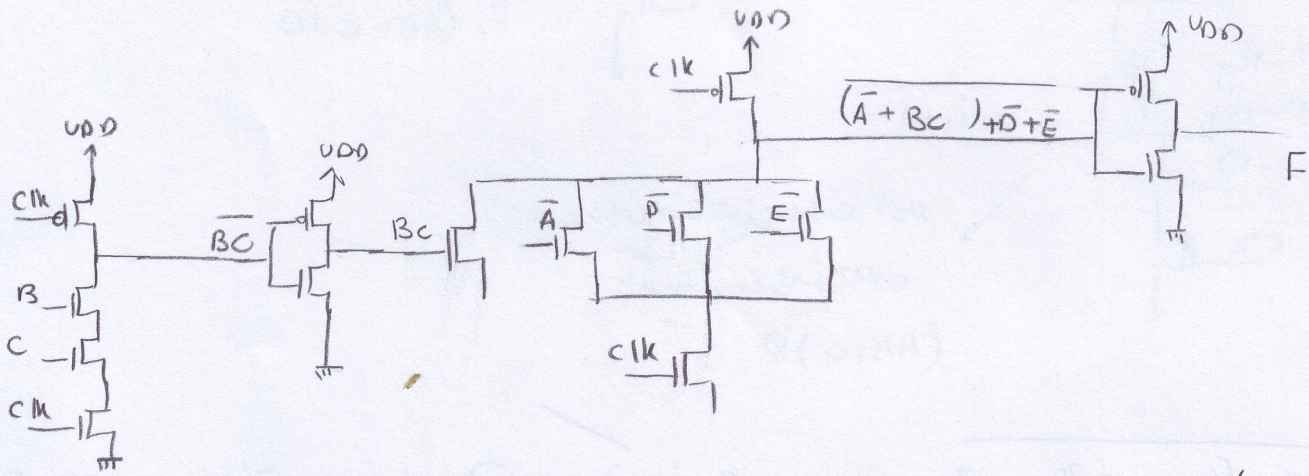 VDD
clk
B
C
clk
B̅C̅
VDD
BC
A̅
D̅
E̅
clk
VDD
clk
(A̅ + BC ) + D̅ + E̅
VDD
F